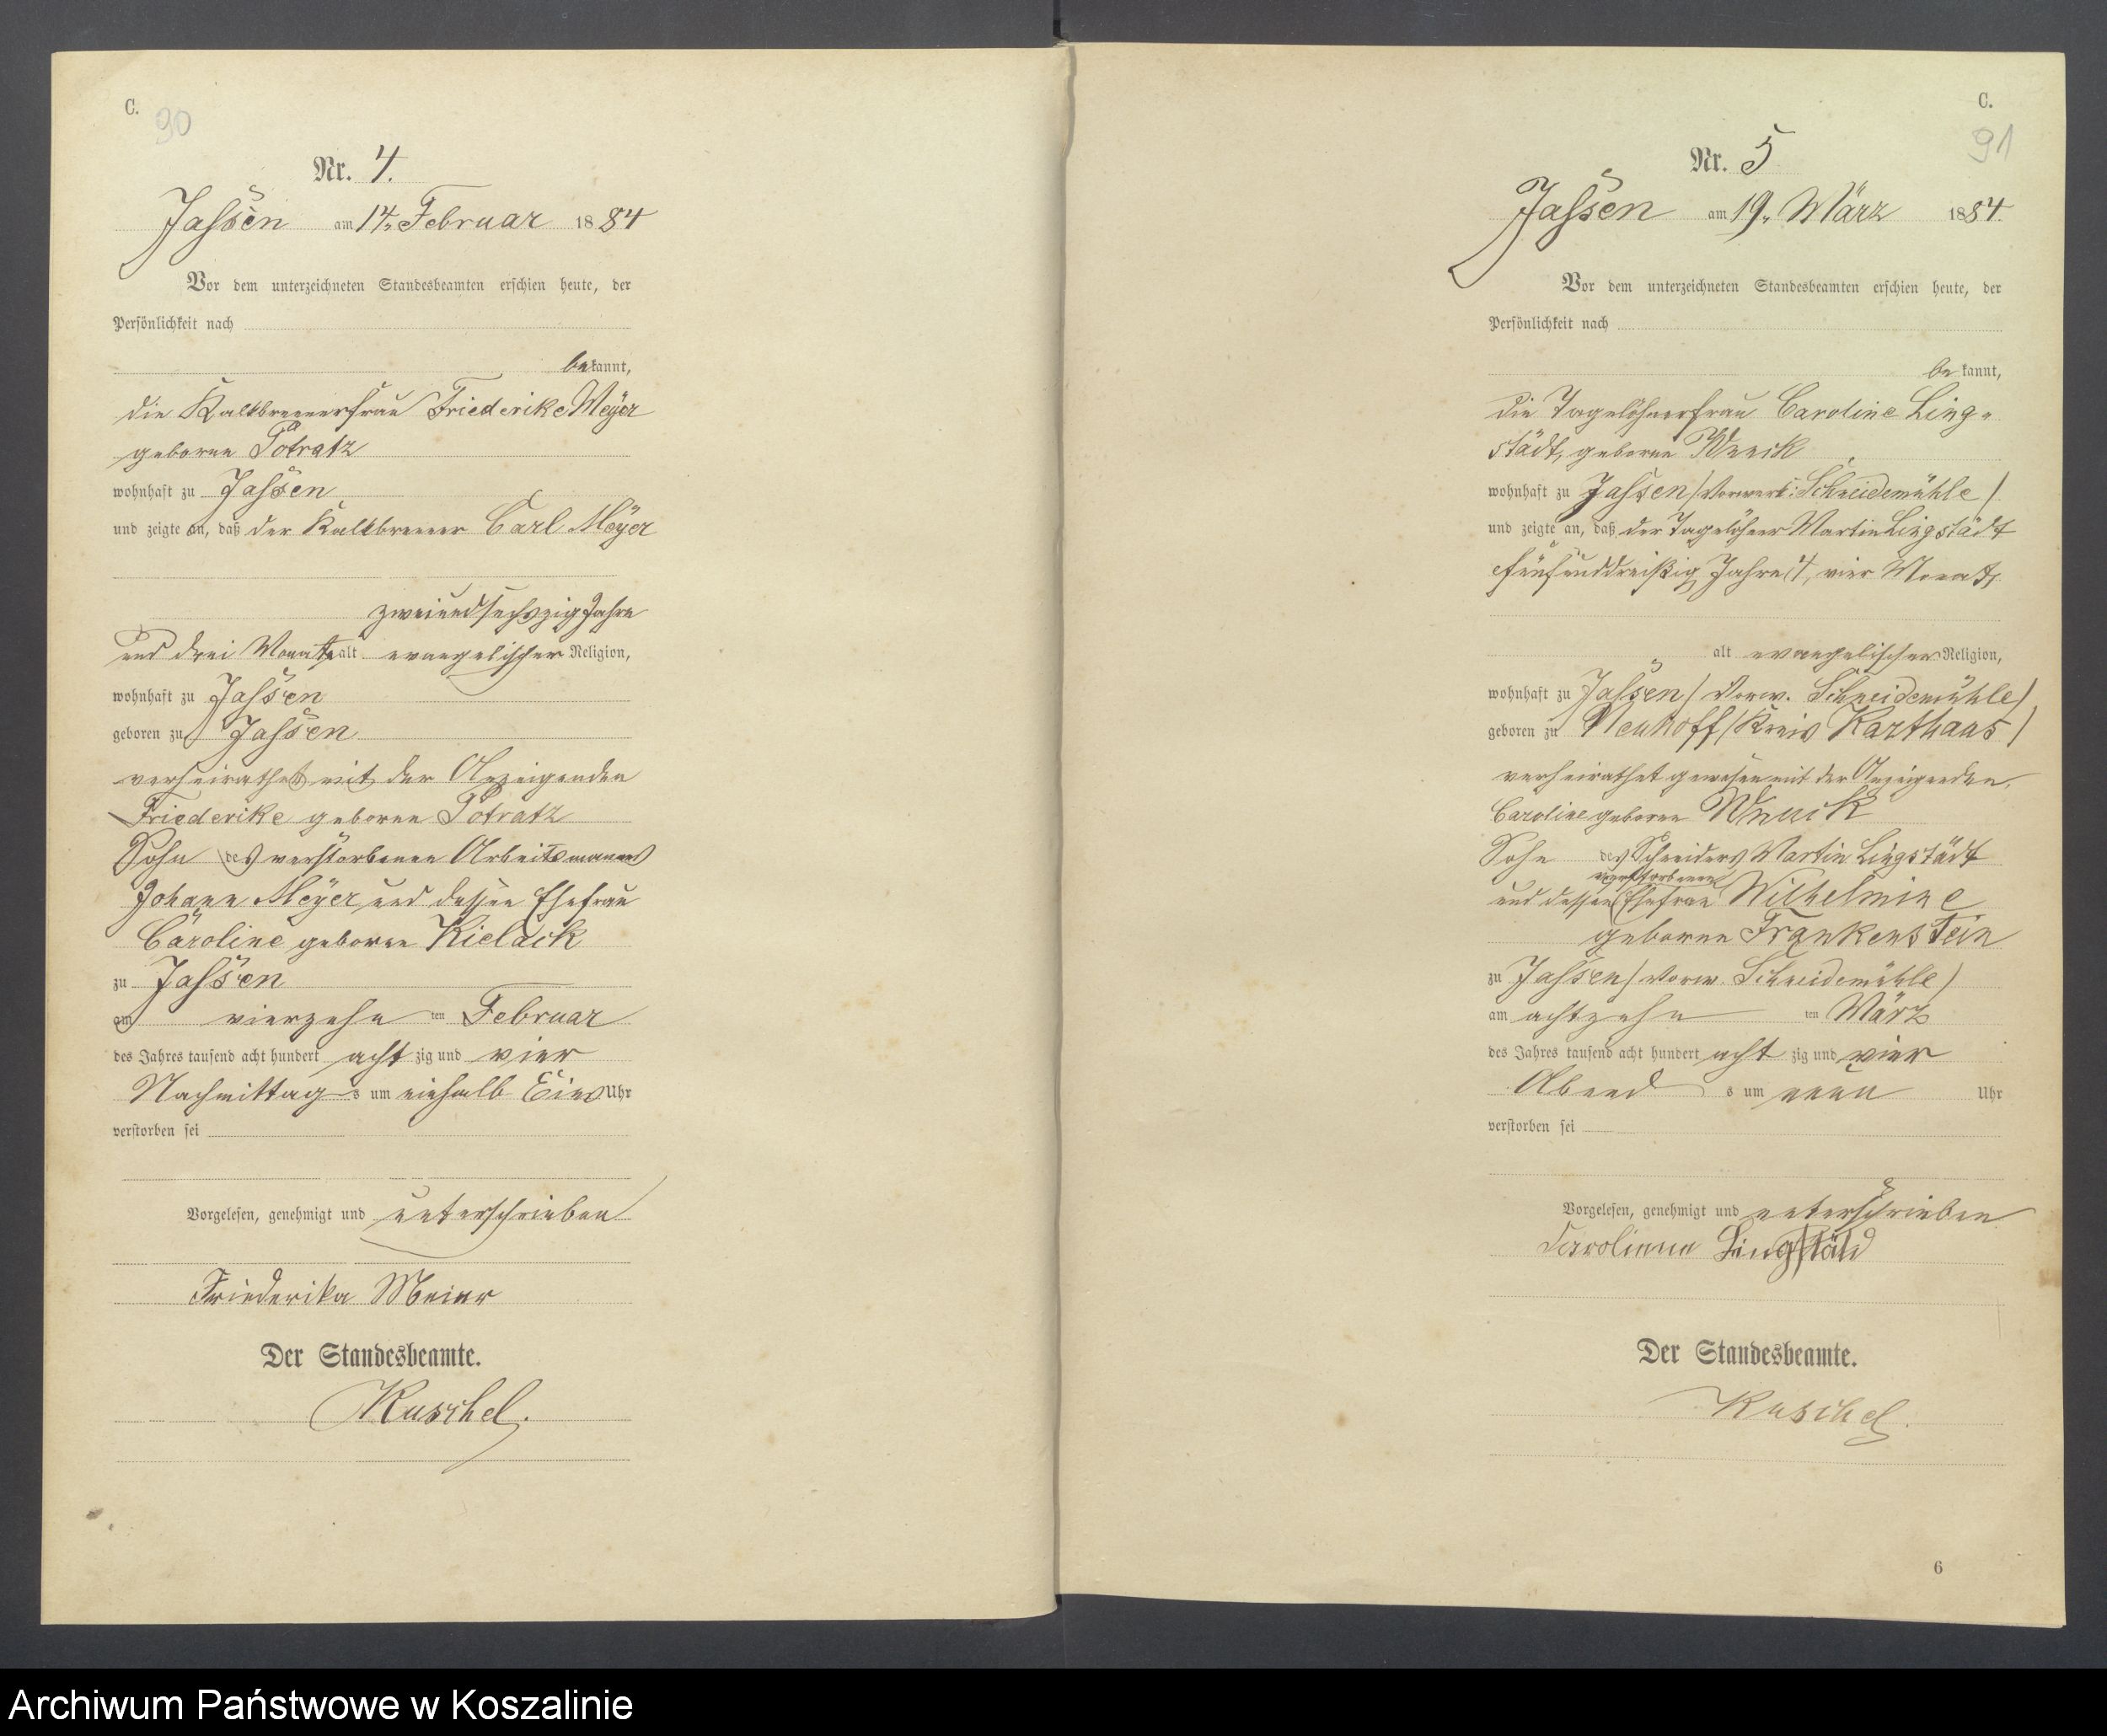 C.
90
Nr. 4.
Jassen am 14. Februar 1884
Vor dem unterzeichneten Standesbeamten erschien heute, der
Persönlichkeit nach
bekannt,
die Kalkbrennerfrau Friederike Meÿer
geborne Potratz
wohnhaft zu Jassen
und zeigte an, daß der Kalkbrenner Carl Meÿer
zweiundsechszig Jahre
und drei Monate alt evangelischer Religion,
wohnhaft zu Jassen
geboren zu Jassen
verheirathet mit der Anzeigenden
Friederike geborne Potratz
Sohn des verstorbenen Arbeitsmannes
Johann Meÿer und dessen Ehefrau
Caroline geborne Kielack
zu Jassen
am vierzehn ten Februar
des Jahres tausend acht hundert acht zig und vier
Nachmittag s um einhalb Eins Uhr
verstorben sei
Vorgelesen, genehmigt und unterschrieben
Friederika Meier
Der Standesbeamte.
Kuschel.
C.
91
Nr. 5
Jassen am 19. März 1884
Vor dem unterzeichneten Standesbeamten erschien heute, der
Persönlichkeit nach
be kannt,
die Tagelöhnerfrau Caroline Ling-
städt, geborne Wnuck
wohnhaft zu Jassen /Vorwerk: Schneidemühle/
und zeigte an, daß der Tagelöhner Martin Lingstädt
fünfunddreißig Jahre, vier Monat,
alt evangelischer Religion,
wohnhaft zu Jassen / Vorw. Schneidemühle/
geboren zu Neuhoff /Kreis Karthaus/
verheirathet gewesen mit der Anzeigenden,
Caroline geborne Wnuck
Sohn des Schneiders Martin Lingstädt
und dessen verstorbenen Ehefrau Wilhelmine
geborne Frankenstein
zu Jassen / Vorw. Schneidemühle/
am achtzehn ten März
des Jahres tausend acht hundert acht zig und vier
Abend s um neun Uhr
verstorben sei
Vorgelesen, genehmigt und unterschrieben
Lingstäd
Der Standesbeamte.
Kuschel.
6
Archiwum Państwowe w Koszalinie